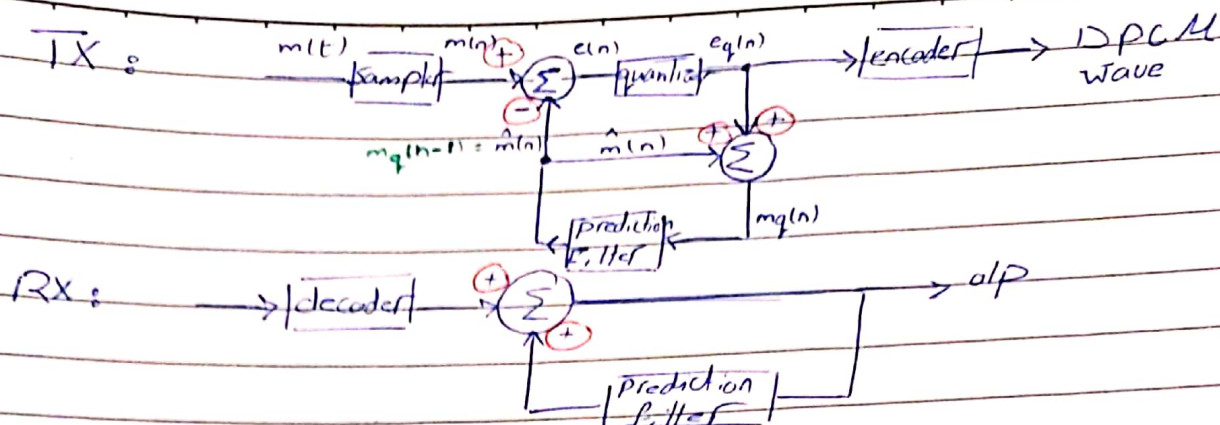 TX :
m(t) sampler m(n) + Σ e(n) quantiz eq(n) encoder DPCM
wave
−
mq(n-1) = m̂(n) m̂(n) + + Σ
prediction
filter
mq(n)
RX :
decoder + Σ + o/p
prediction
filter